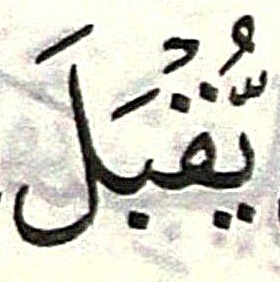 يُّقْبَلَ